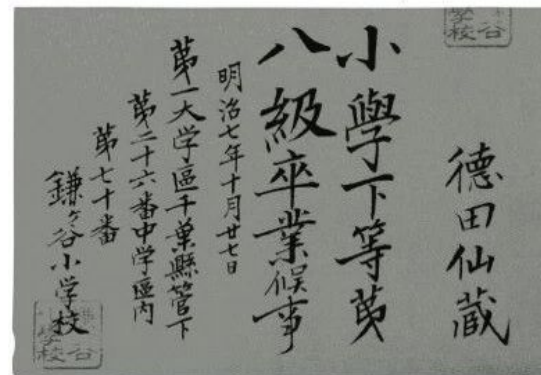 德田仙蔵
小學下等第
八級卒業候事
明治七年十月廿七日
第一大学區千葉縣管下
第二十六番中学區内
第七十番
鎌ヶ谷小学校